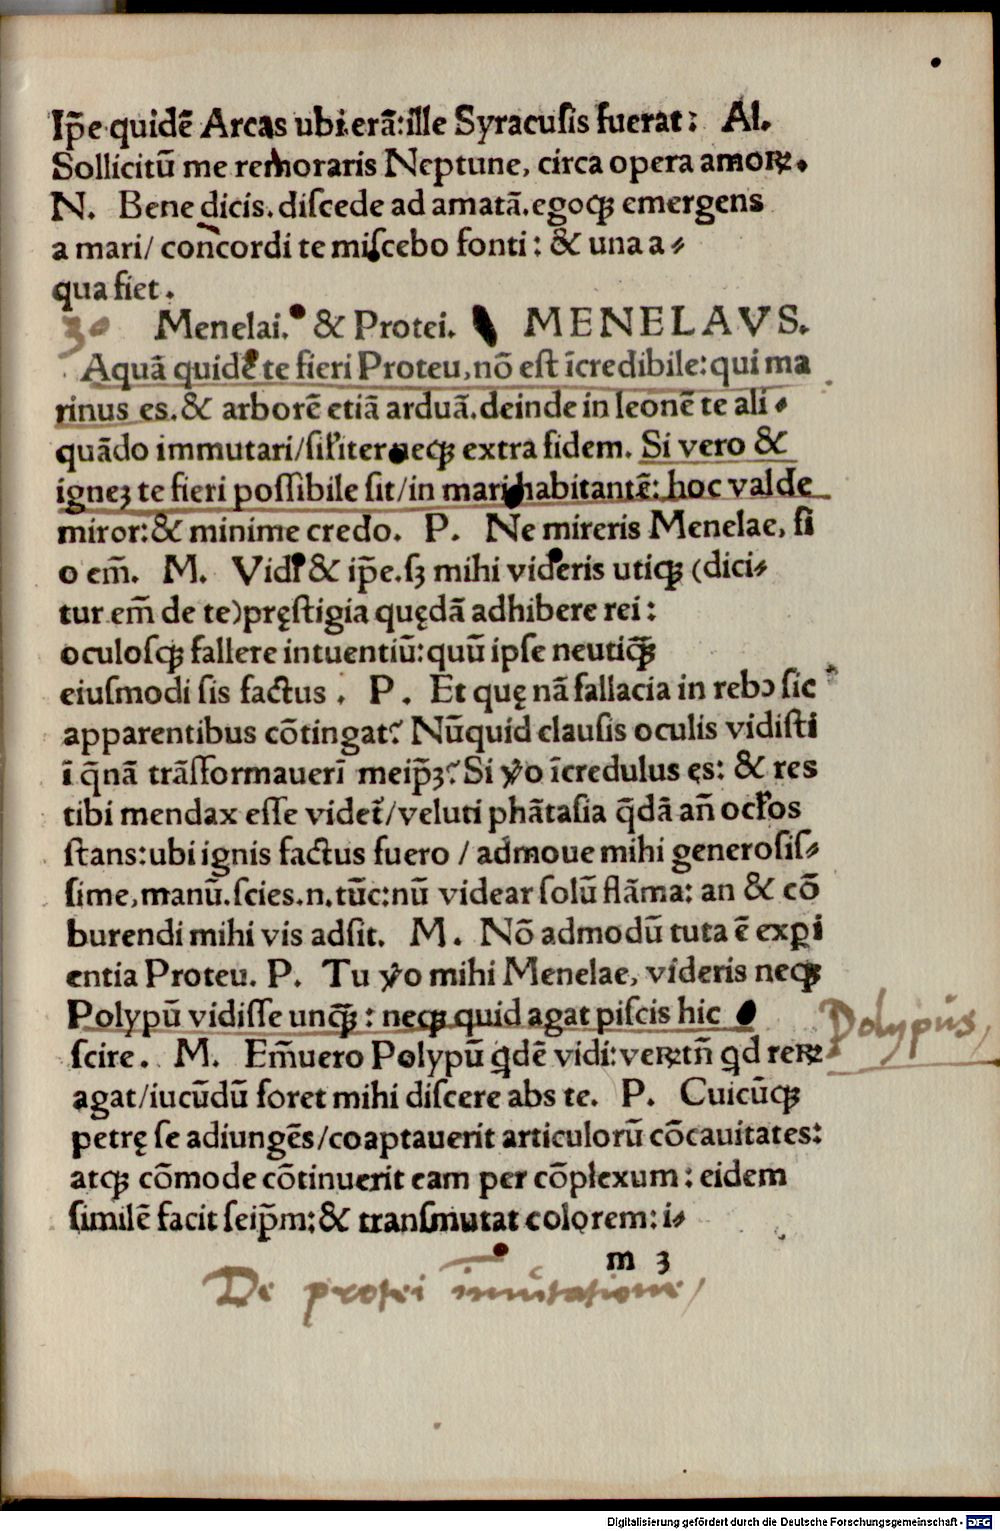 Ip̃e quidē Arcas ubi.erã:ille Syracusis fuerat: Al.
Sollicitũ me remoraris Neptune, circa opera amoꝝ.
N. Bene dicis.discede ad amatã.egoqꝫ emergens
a mari/ concordi te miscebo fonti: & una a-
qua fiet.
30 Menelai. & Protei. MENELAVS.
Aquã quidē te fieri Proteu,nõ est ĩcredibile:qui ma
rinus es.& arborē etiã arduã.deinde in leonē te ali-
quãdo immutari/siłiter neqꝫ extra fidem. Si vero &
igneꝫ te fieri possibile sit/in mari habitantē: hoc valde
miror:& minime credo. P. Ne mireris Menelae, si
o em̃. M. Vidi & ip̃e.sꝫ mihi videris utiqꝫ (dici-
tur em̃ de te)pręstigia quędã adhibere rei:
oculosqꝫ fallere intuentiũ:quũ ipse neutiq̃ꝫ
eiusmodi sis factus. P. Et quę nã fallacia in rebꝯ sic
apparentibus cõtingat? Nũquid clausis oculis vidisti
ĩ q̃nã trãsformauerĩ meip̃ꝫ? Si v̓o ĩcredulus ęs: & res
tibi mendax esse videt᷑/veluti phãtasia q̃dã añ ocłos
stans:ubi ignis factus fuero / admoue mihi generosis-
sime,manũ.scies.n.tũc:nũ videar solũ flãma: an & cõ
burendi mihi vis adsit. M. Nõ admodũ tuta ē exꝑi
entia Proteu. P. Tu v̓o mihi Menelae, videris neqꝫ
Polypũ vidisse unq̃ꝫ: neqꝫ quid agat piscis hic
Polypus,
scire. M. Em̃uero Polypũ qdē vidi:veꝝtñ qd reꝝ
agat/iucũdũ foret mihi discere abs te. P. Cuicũqꝫ
petrę se adiungẽs/coaptauerit articulorũ cõcauitates:
atqꝫ cõmode cõtinuerit eam per cõplexum: eidem
similē facit seip̃m:& transmutat colorem: i-
m 3
De protei imutatione/
Digitalisierung gefördert durch die Deutsche Forschungsgemeinschaft - DFG